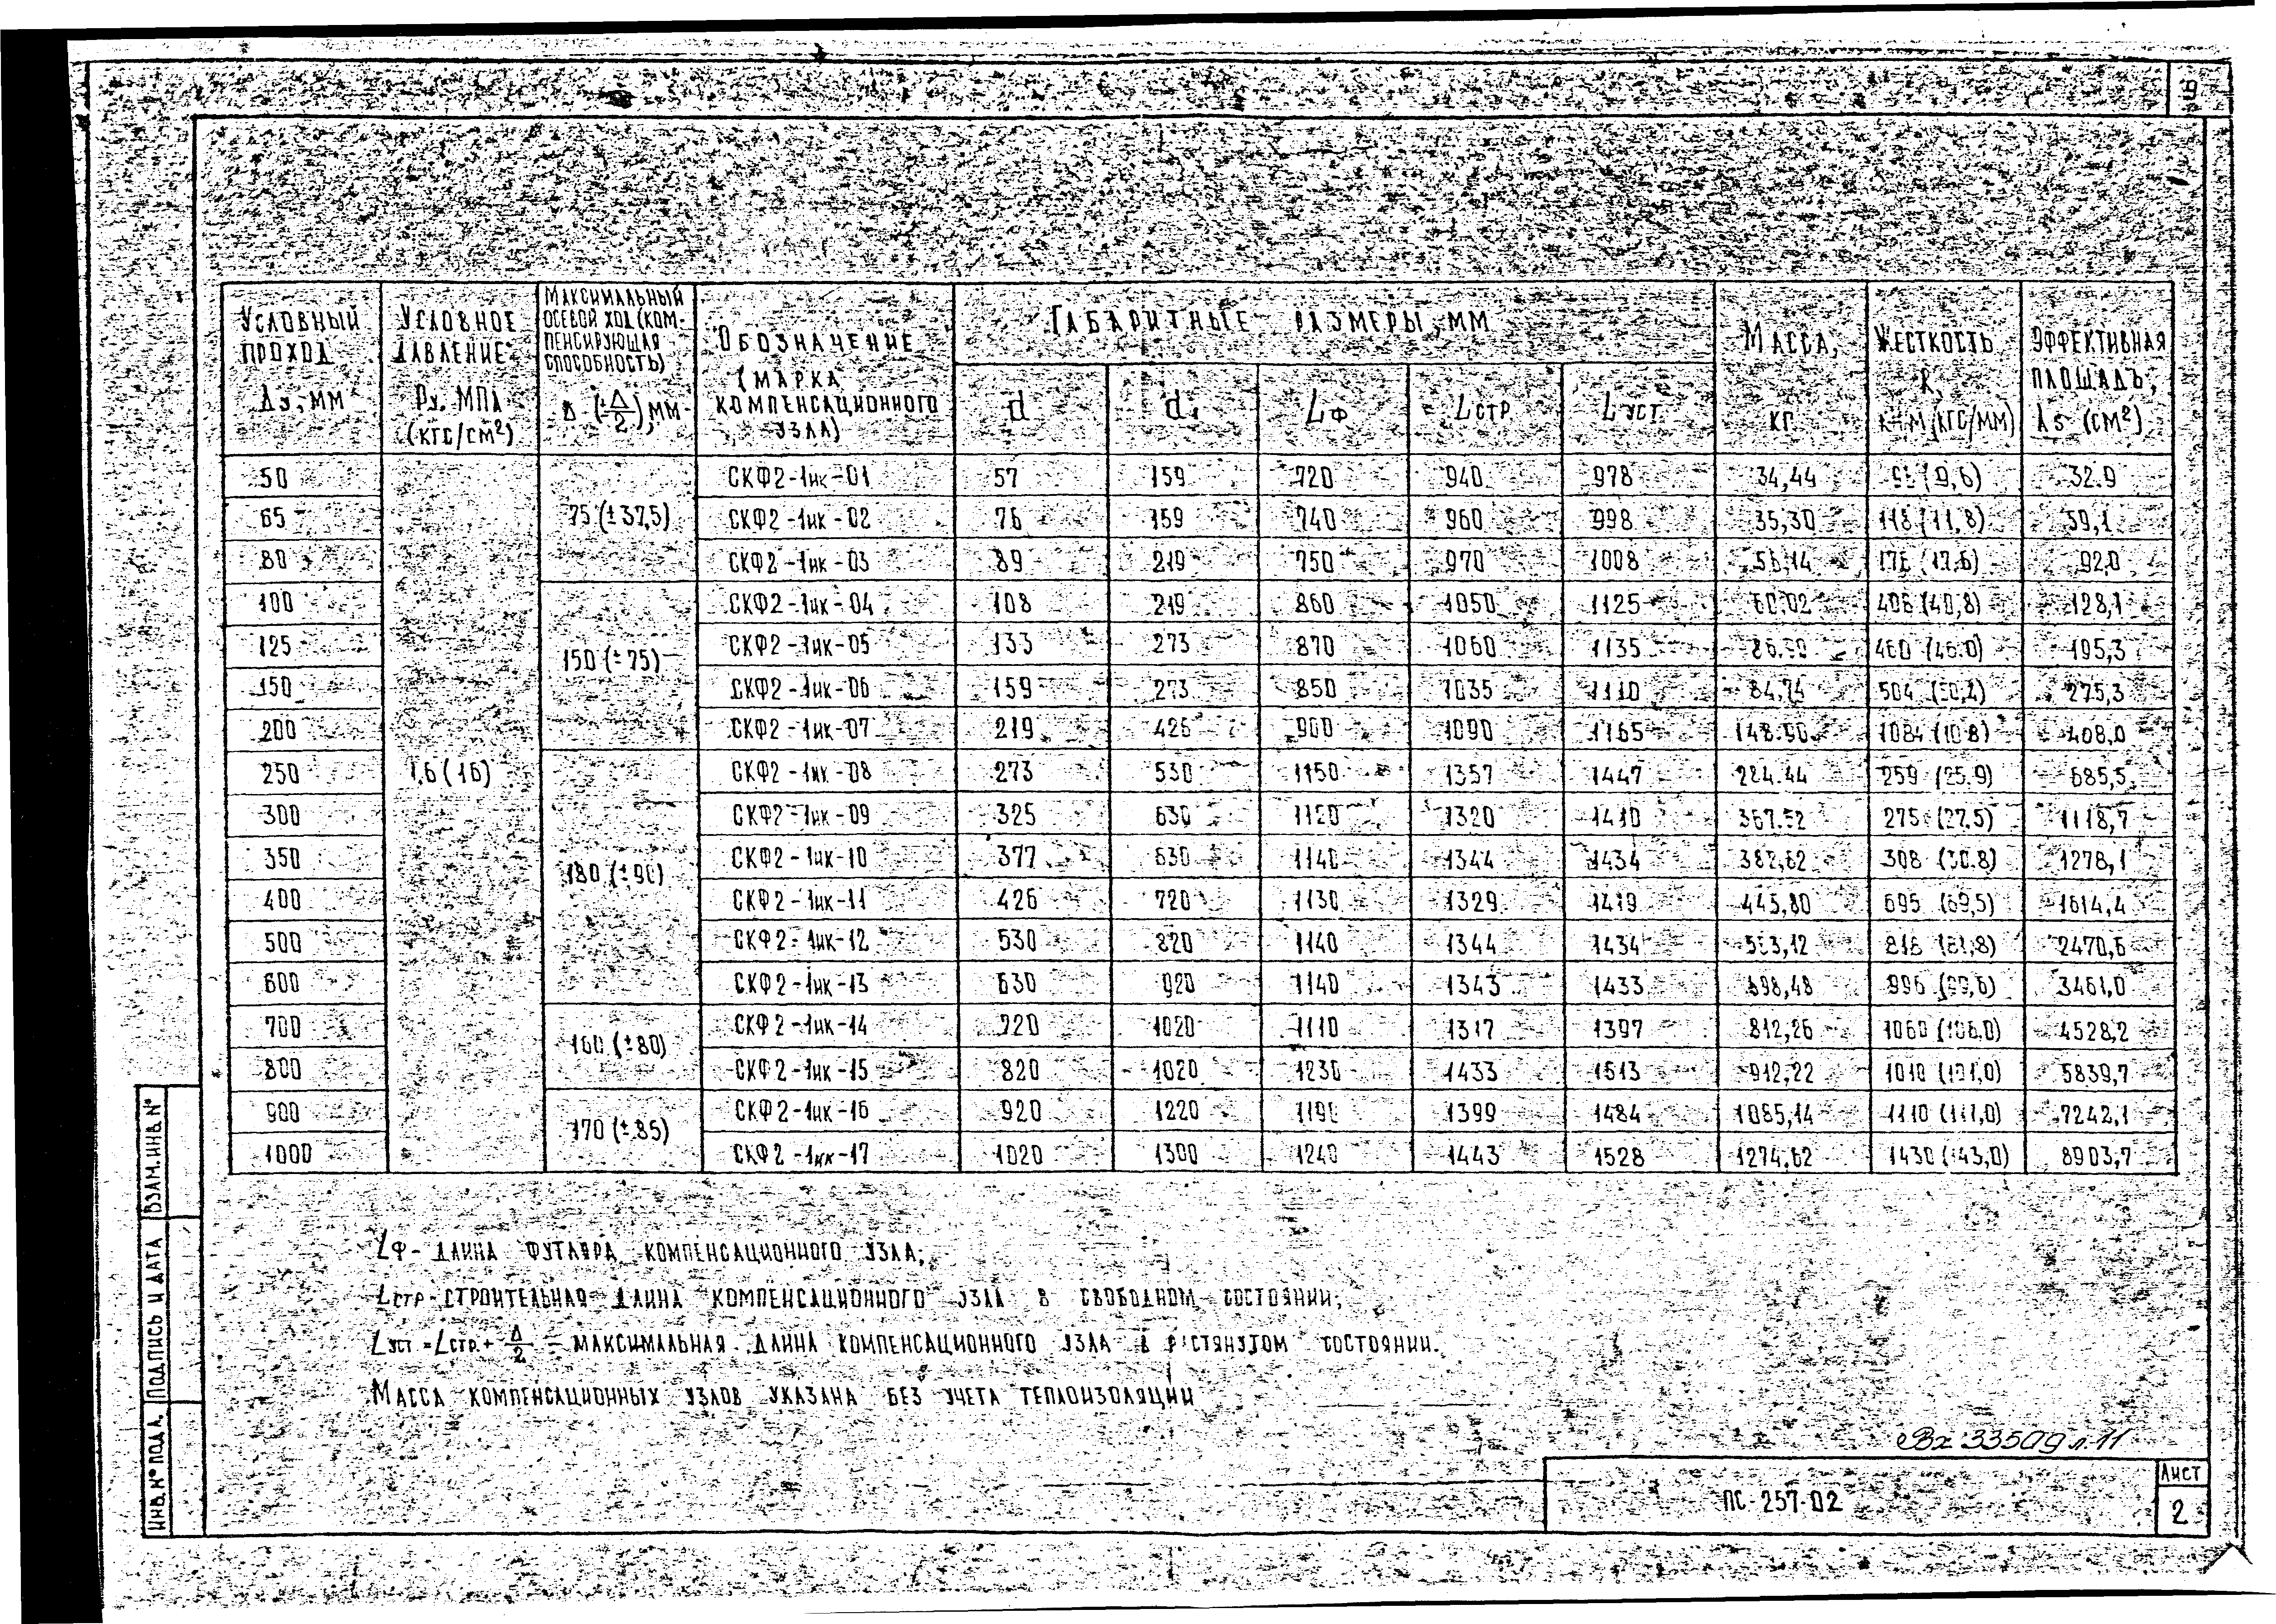 9
УСЛОВНЫЙ ПРОХОД Ду, ММ
УСЛОВНОЕ ДАВЛЕНИЕ Ру, МПА (КГС/СМ²)
МАКСИМАЛЬНЫЙ ОСЕВОЙ ХОД (КОМ-ПЕНСИРУЮЩАЯ СПОСОБНОСТЬ) Δ (±Δ/2), ММ
ОБОЗНАЧЕНИЕ (МАРКА КОМПЕНСАЦИОННОГО УЗЛА)
ГАБАРИТНЫЕ РАЗМЕРЫ, ММ
d d₁ Lф Lстр Lуст
МАССА, КГ
ЖЕСТКОСТЬ (КГС/ММ)
ЭФФЕКТИВНАЯ ПЛОЩАДЬ, (СМ²)
1,6 (16)
75 (±37,5)
50 СКФ2-1ик-01 57 159 720 940 978 34,44 (9,6) 32.9
65 СКФ2-1ик-02 76 159 740 960 998 35,30 118 (11,8) 59,1
80 СКФ2-1ик-03 89 219 750 970 1008 56,14 176 (17.6) 92,0
150 (±75)
100 СКФ2-1ик-04 108 219 860 1050 1125 60.02 408 (40,8) 128,1
125 СКФ2-1ик-05 133 273 870 1060 1135 460 (46.0) 195,3
150 СКФ2-1ик-06 159 273 850 1035 1110 84.74 504 (50,4) 275,3
200 СКФ2-1ик-07 219 426 900 1090 1165 148.90 1084 (108) 408,0
180 (±90)
250 СКФ2-1ик-08 273 530 1150 1357 1447 224.44 259 (25.9) 685,5
300 СКФ2-1ик-09 325 630 1120 1320 1410 367.52 275 (27.5) 1118,7
350 СКФ2-1ик-10 377 630 1140 1344 1434 382,62 308 (30.8) 1278,1
400 СКФ2-1ик-11 426 720 1130 1329 1419 445,80 695 (69,5) 1614,4
500 СКФ2-1ик-12 530 820 1140 1344 1434 818 (81,8) 2470,6
600 СКФ2-1ик-13 630 920 1140 1343 1433 698,48 996 (99,6) 3461,0
160 (±80)
700 СКФ2-1ик-14 720 1020 1110 1317 1397 812,26 1060 (106,0) 4528,2
800 СКФ2-1ик-15 820 1020 1230 1433 1513 912,22 1010 (101,0) 5839,7
170 (±85)
900 СКФ2-1ик-16 920 1220 1190 1399 1484 1085,14 1110 (111,0) 7242,1
1000 СКФ2-1ик-17 1020 1300 1240 1443 1528 1274,62 1430 (143,0) 8903,7
Lф - ДЛИНА ФУТЛЯРА КОМПЕНСАЦИОННОГО УЗЛА;
Lстр - СТРОИТЕЛЬНАЯ ДЛИНА КОМПЕНСАЦИОННОГО УЗЛА В СВОБОДНОМ СОСТОЯНИИ;
Lуст = Lстр. + Δ/2 - МАКСИМАЛЬНАЯ ДЛИНА КОМПЕНСАЦИОННОГО УЗЛА В РАСТЯНУТОМ СОСТОЯНИИ.
МАССА КОМПЕНСАЦИОННЫХ УЗЛОВ УКАЗАНА БЕЗ УЧЕТА ТЕПЛОИЗОЛЯЦИИ
ВЗАМ.ИНВ.N°
ПОДПИСЬ И ДАТА
ИНВ.N° ПОДЛ.
Вх 33509 л.11
ПС-257-02
ЛИСТ
2